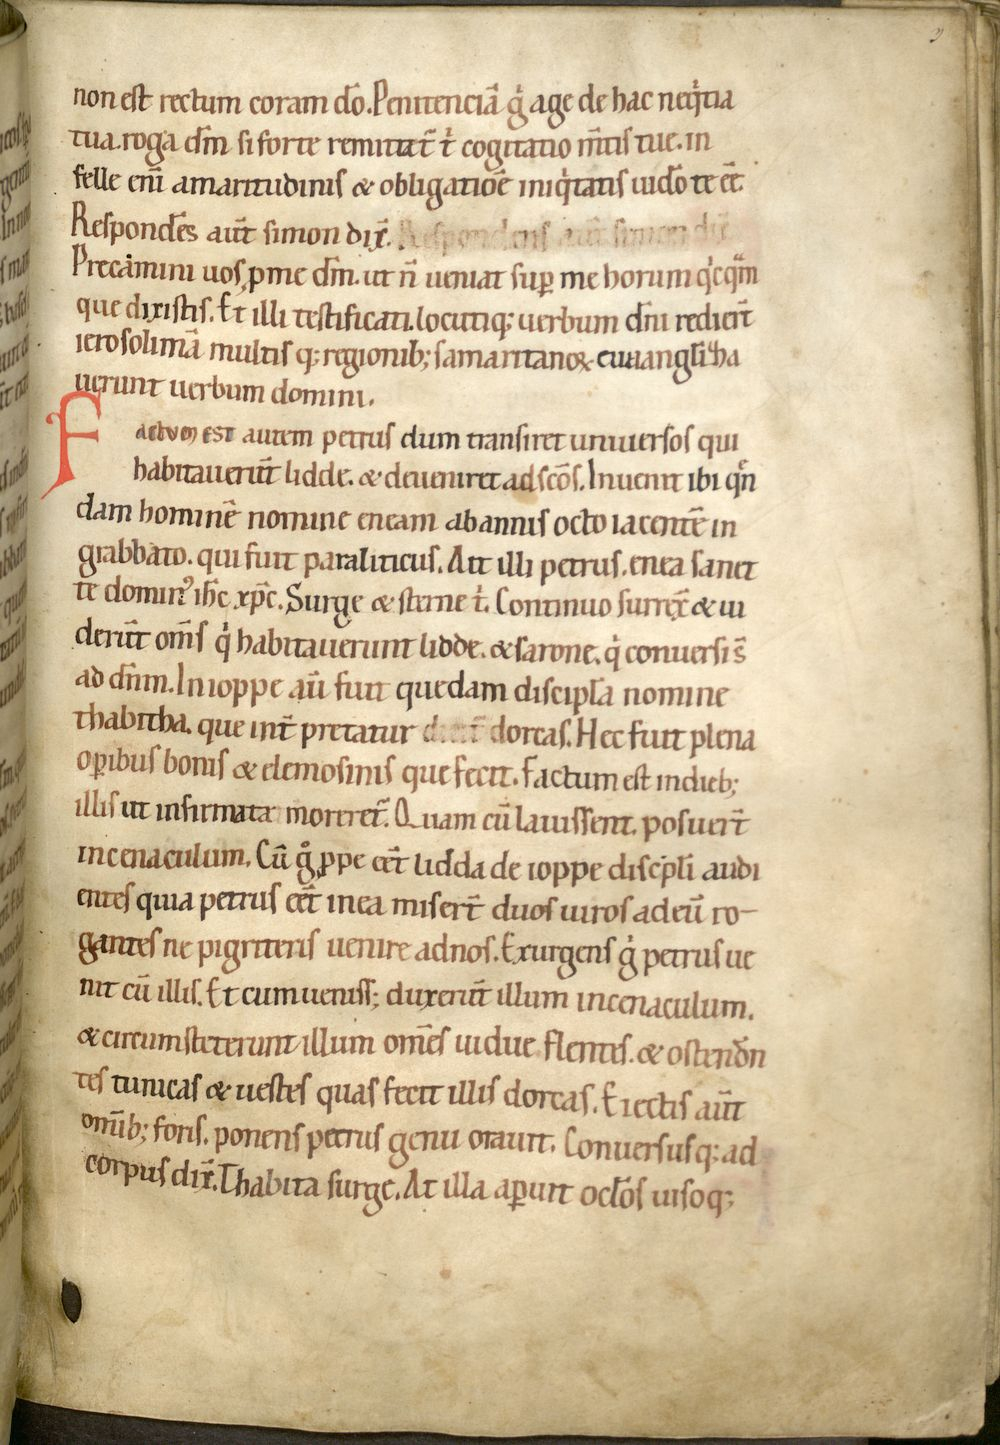 non est rectum coram dō. Penitenciā g̓ age de hac neq̓tia
tua. roga dm̄ si forte remittat᷑ t̓ cogitatio m̄tis tue. in
felle eni᷑ amaritudinis & obligatiōē iniq̓tatis uidō te ēē.
Respondēs aut̄ simon dix̄. Respondens aut̄ simon dix̄
Precamini uos ꝑ me dm̄. ut n̄ ueniat suꝑ me horum q̓cquā
que dixistis. Et illi testificati. locutiq; uerbum dn̄i redier̄t
ierosolimā multis q; regionib; samaritanoꝝ euuangliʒha
uerunt uerbum domini.
Factum est autem petrus dum transiret uniuersos qui
habitauerūt lidde. & deueniret ad scōs. Inuenit ibi qn̄
dam hominē nomine eneam ab annis octo iacentē in
grabbato. qui fuit paraliticus. Ait illi petrus. enea sanet
te domin᷒ ihc̄ xpc̄. Surge & sterne t̓. Continuo surrex̄ & ui
derūt om̄s q̓ habitauerunt lidde. & sarone. q̓ conuersi s̄
ad dn̄m. In ioppe aū fuit quedam discipl̄a nomine
thabitha. que int̄ pretatur dorcas. Hec fuit plena
oꝑibus bonis & elemosinis que fecit. Factum est in dieb;
illis ut infirmata moreret᷑. Quam cū lauissent. posuer̄t
in cenaculum. Cū g̊ ꝓpe cēt lidda de ioppe discipl̄i audi
entes quia petrus cēt in ea miser̄t duos uiros ad eū ro-
gantes ne pigriteris uenire ad nos. Exurgens g̓ petrus ue
nit cū illis. Et cum ueniss; duxerūt illum in cenaculum.
& circumsteterunt illum om̄es uidue flentes. & ostendn̄
tes tunicas & uestes quas fecit illis dorcas. Eiectis aūt
omīb; foris. ponens petrus genu orauit. Conuersusq; ad
corpus dix̄. Thabita surge. At illa aꝑuit oclōs uisoq;